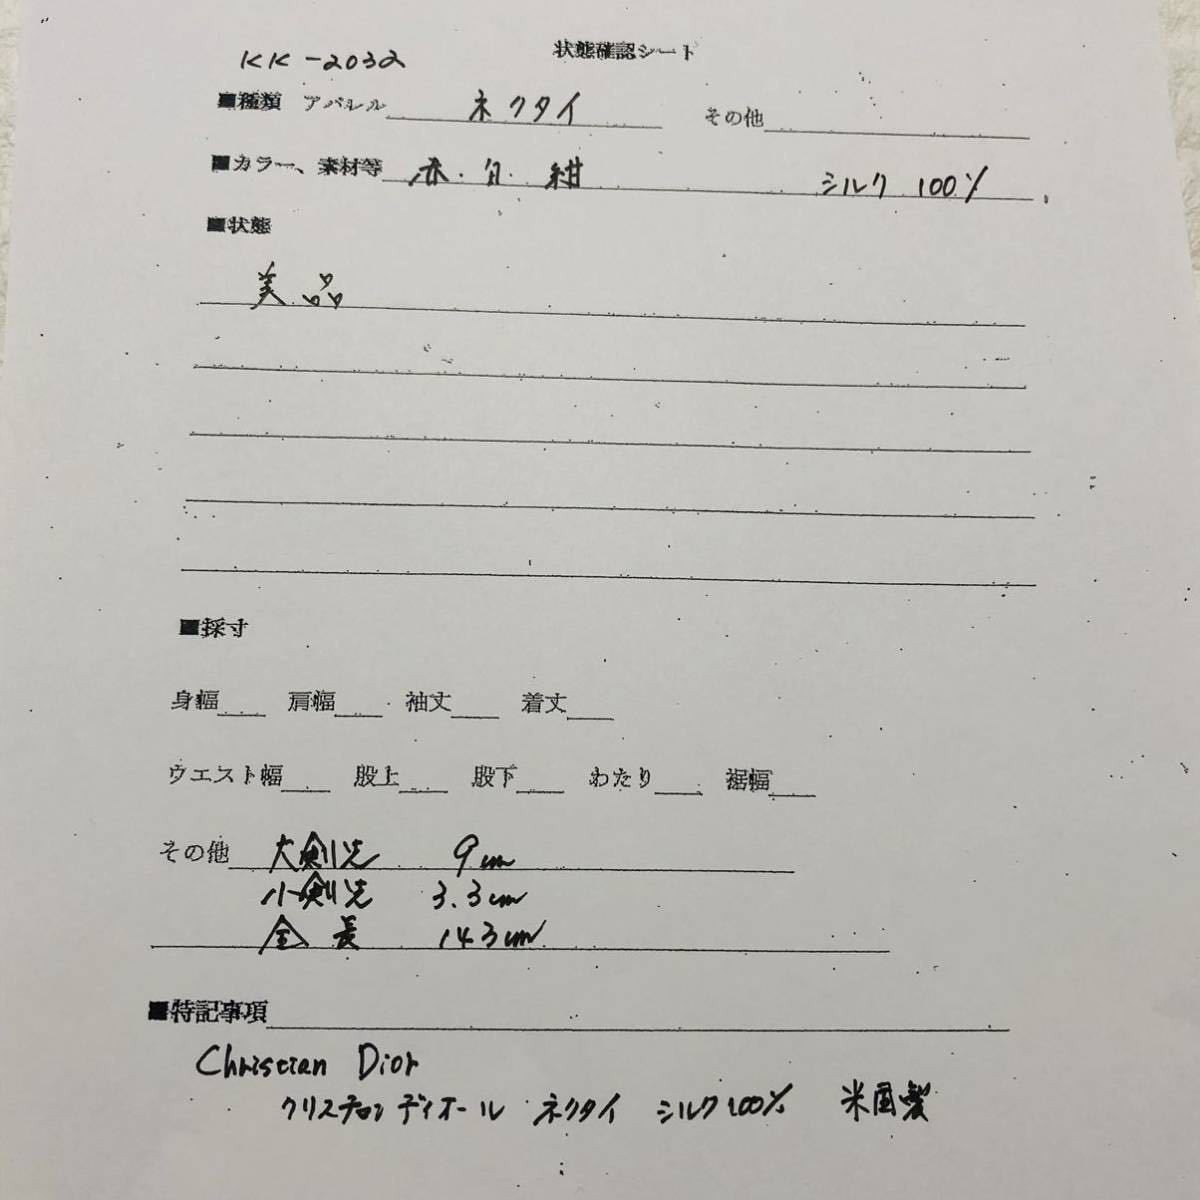 KK-2032
状態確認シート
■種類 アパレル ネクタイ その他
■カラー、素材等 赤・白・紺 シルク 100%
■状態
美品
■採寸
身幅 肩幅 袖丈 着丈
ウエスト幅 股上 股下 わたり 裾幅
その他 大剣先 9cm
小剣先 3.3cm
全長 143cm
■特記事項
Christian Dior
クリスチャンディオール ネクタイ シルク100% 米国製